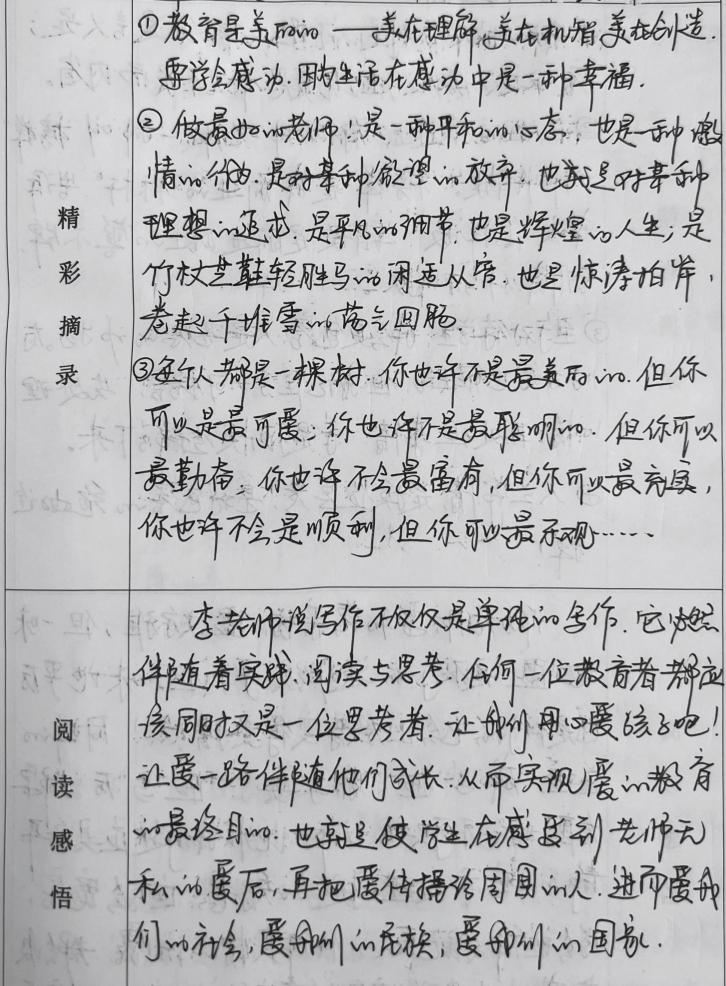 ①教育是美的 —— 美在理解,美在机智,美在创造.
要学会感动.因为生活在感动中是一种幸福.
②做最好的老师!是一种平和的心态,也是一种激
情的行为.是对某种欲望的放弃.也就是对某种
理想的追求.是平凡的细节,也是辉煌的人生;是
竹杖芒鞋轻胜马的闲适从容.也是惊涛拍岸,
卷起千堆雪的荡气回肠.
③每个人都是一棵树.你也许不是最美的.但你
可以是最可爱;你也许不是最聪明的.但你可以
最勤奋;你也许不会最富有,但你可以最充实,
你也许不会是顺利,但你可以最乐观……
精彩摘录
李老师说写作不仅仅是单纯的写作.它必然
伴随着实践.阅读与思考.任何一位教育者都应
该同时又是一位思考者.让我们用心爱孩子吧!
让爱一路伴随他们成长.从而实现爱的教育
的最终目的.也就是使学生在感受到老师无
私的爱后,再把爱传播给周围的人.进而爱我
们的社会,爱我们的民族,爱我们的国家.
阅读感悟